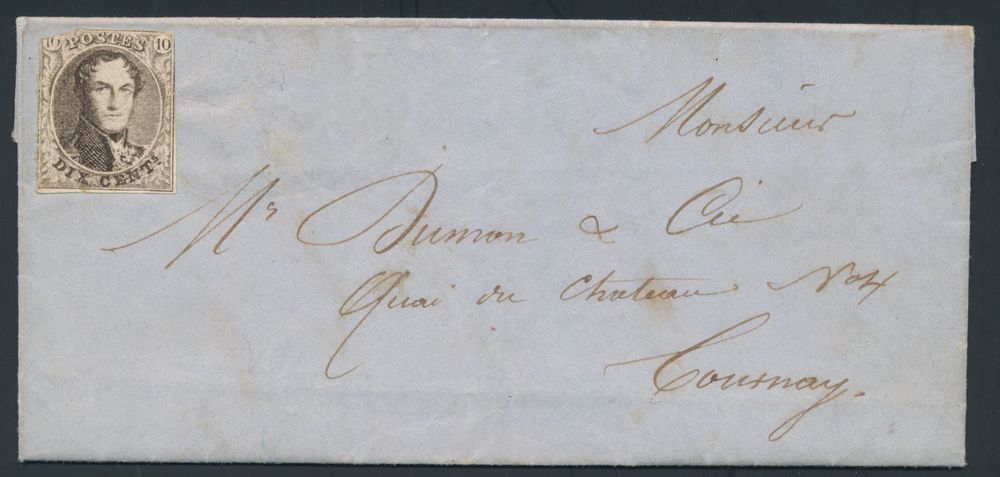 10 POSTES 10
DIX CENTS
Monsieur
Mr Dumon & Cie
Quai du Chateau No 4
Tournay.